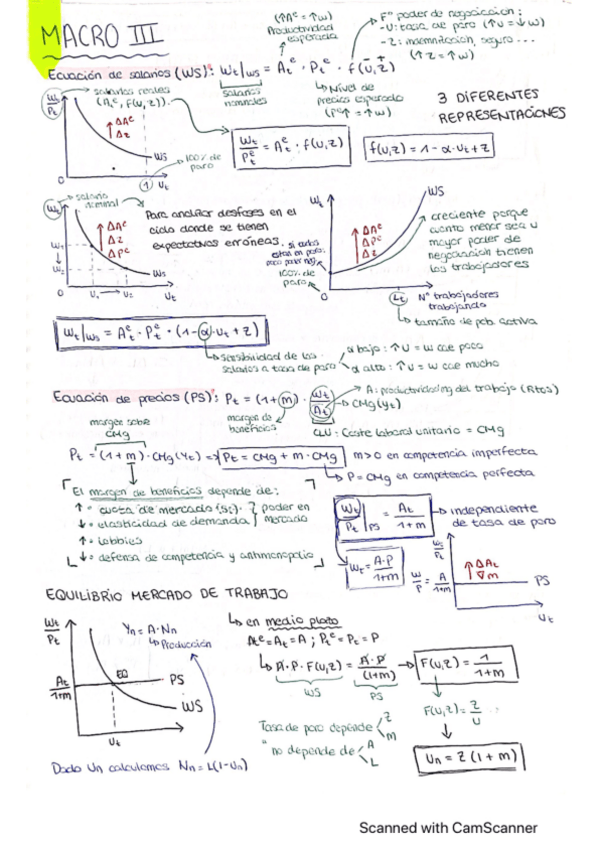 MACRO III
(↑Aᵉ = ↑w)
Productividad
esperada
Fº poder de negociación:
- U: tasa de paro (↑u = ↓w)
- Z: indemnización, seguro...
(↑Z = ↑w)
Ecuación de salarios (WS): Wt|ws = Atᵉ · Ptᵉ · f(ū, z⁺)
salarios
nominales
Nivel de
precios esperado
(Pᵉ↑ = ↑w)
3 DIFERENTES
REPRESENTACIONES
Wt/Pt
salarios reales
(Aᵉ, f(u,z)).
↑ΔAᵉ
Δz
WS
100% de
paro
0
1
Ut
Wt/Ptᵉ = Atᵉ · f(u,z)
f(u,z) = 1 - α·ut + z
Wt
salario
nominal
↑ΔAᵉ
Δz
ΔPᵉ
W₁
W₂
WS
0
U₁ → U₂
Ut
Para analizar desfases en el
ciclo donde se tienen
expectativas erróneas.
si todos
están en paro:
poco poder neg.
100% de
paro
Wt
WS
↑ΔAᵉ
ΔPᵉ
Δz
creciente porque
cuanto menor sea u
mayor poder de
negociación tienen
los trabajadores
0
Lt
Nº trabajadores
trabajando
tamaño de pob. activa
Wt|ws = Atᵉ · Ptᵉ · (1-α·ut + z)
sensibilidad de los
salarios a tasa de paro
α bajo: ↑u = w cae poco
α alto: ↑u = w cae mucho
Ecuación de precios (PS): Pt = (1+m) · Wt/At
A: productividad mg del trabajo (Rtos)
CMg(Yt)
margen de
beneficios
CLU: Coste laboral unitario = CMg
margen sobre
CMg
Pt = (1+m) · CMg(Yt) => Pt = CMg + m · CMg
m>0 en competencia imperfecta
P = CMg en competencia perfecta
El margen de beneficios depende de:
↑ = cuota de mercado (si)
↓ = elasticidad de demanda
poder en
mercado
↑ = lobbies
↓ = defensa de competencia y antimonopolio
Wt/Pt|PS = At/1+m
independiente
de tasa de paro
Wt = A·P/1+m
Wt/Pt
W/P = A/1+m
↑ΔAt
∇m
PS
Ut
EQUILIBRIO MERCADO DE TRABAJO
Wt/Pt
Yn = A·Nn
Producción
At/1+m
EQ
PS
WS
Ut
Dado Un calculamos Nn = L(1-Un)
en medio plazo
Atᵉ = At = A ; Ptᵉ = Pt = P
A·P·F(u,z) = A·P/(1+m) → F(u,z) = 1/1+m
WS
PS
F(u,z) = z/u
Un = Z(1+m)
Tasa de paro depende
Z
m
" no depende de
A
L
Scanned with CamScanner